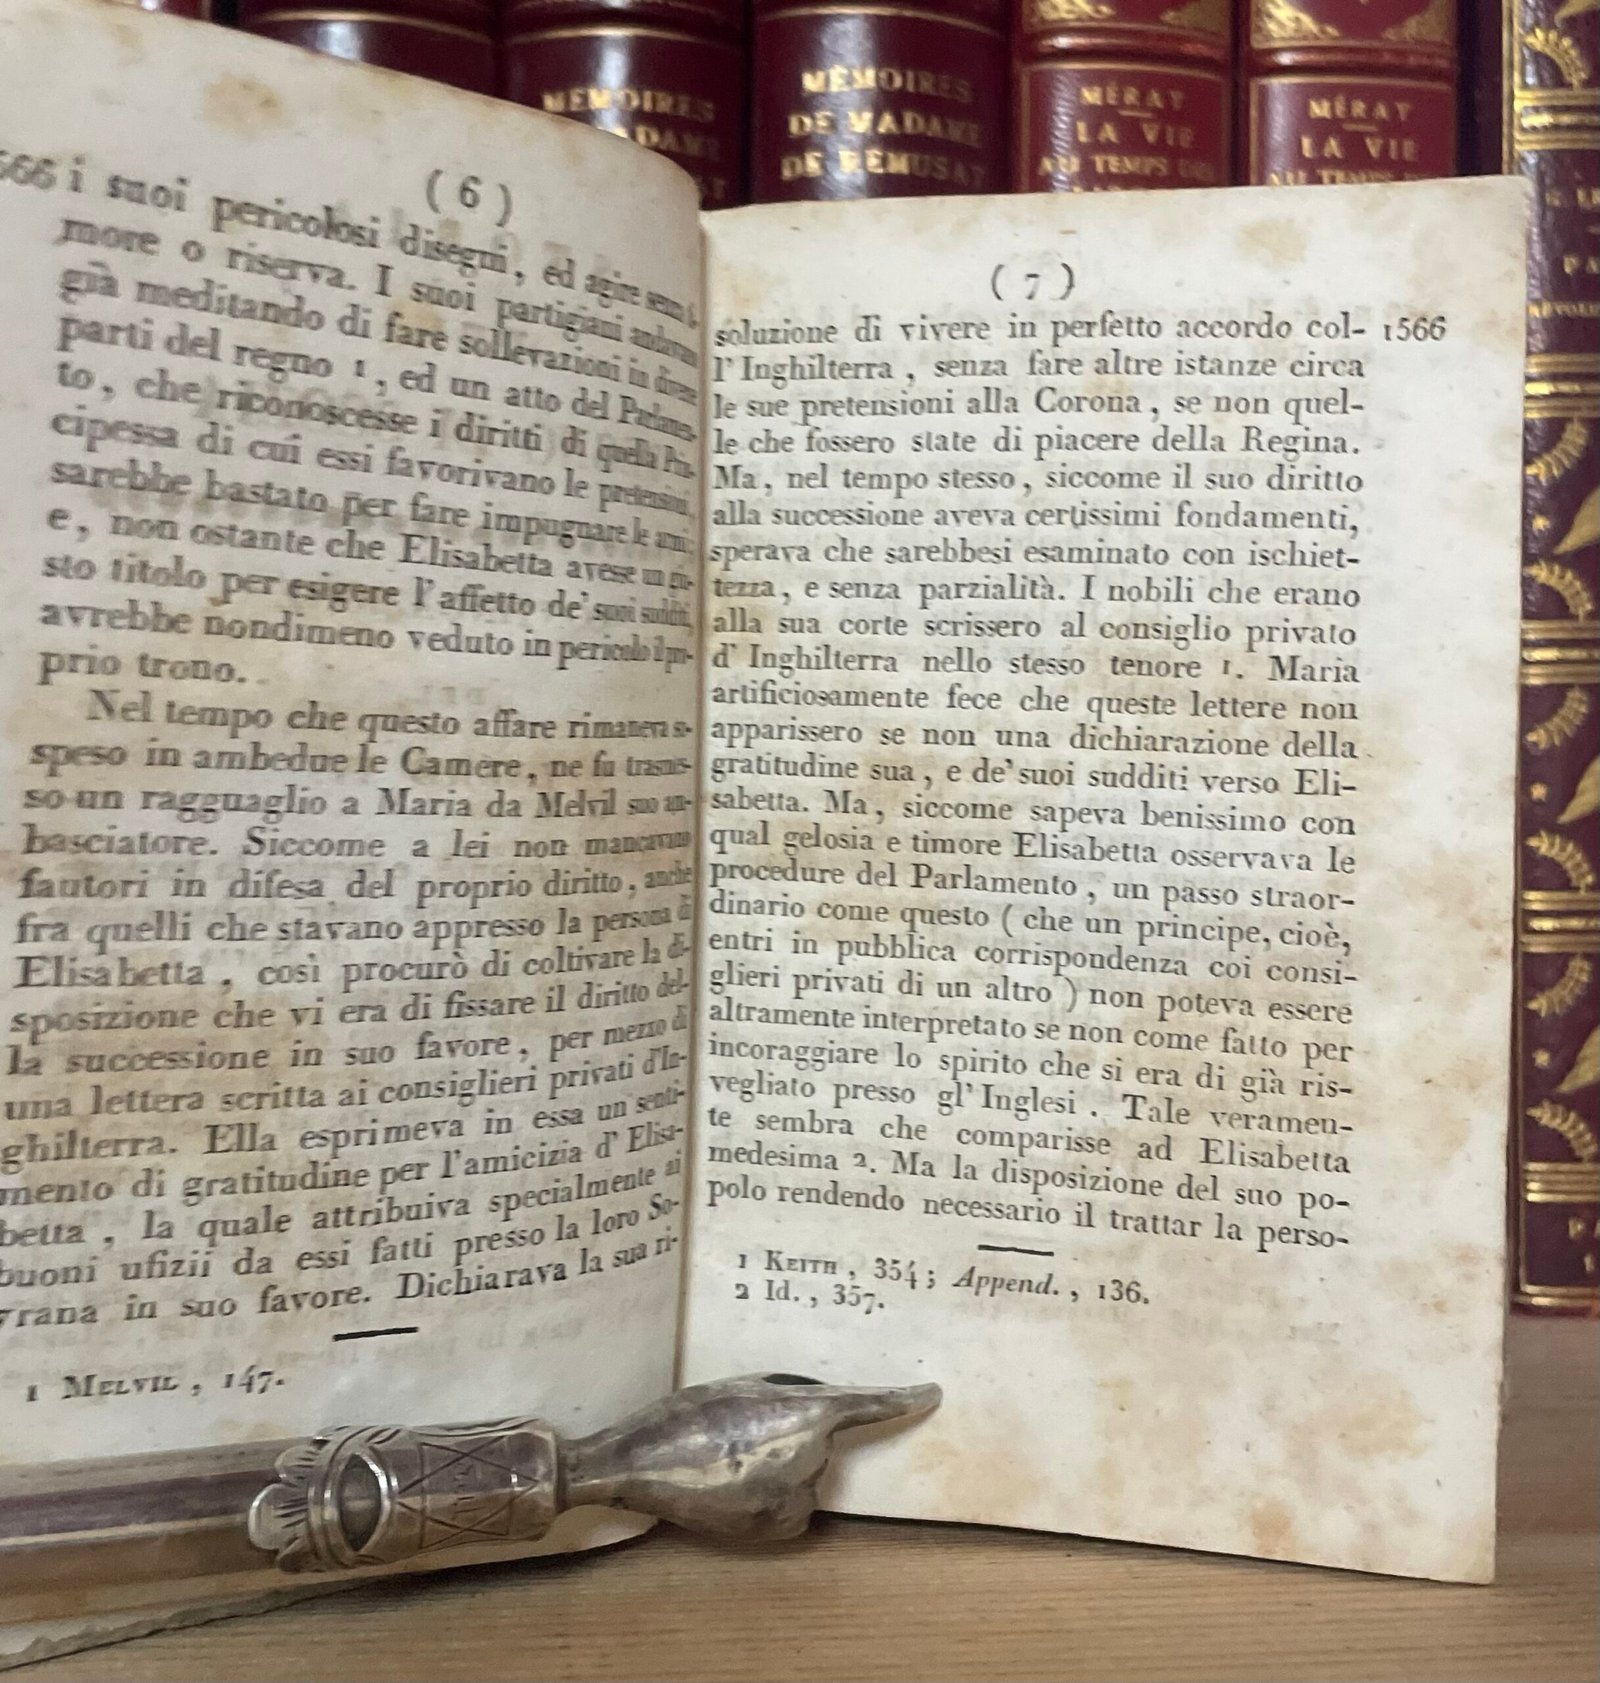 MÉMOIRES
MADAME
MÉMOIRES
DE MADAME
DE RÉMUSAT
MÉRAT
LA VIE
AU TEMPS DES
MÉRAT
LA VIE
AU TEMPS
( 6 )
566 i suoi pericolosi disegni, ed agire senza ti-
more o riserva. I suoi partigiani andavan
già meditando di fare sollevazioni in diverse
parti del regno 1, ed un atto del Parlamen-
to, che riconoscesse i diritti di quella Prin-
cipessa di cui essi favorivano le pretensioni,
sarebbe bastato per fare impugnare le armi;
e, non ostante che Elisabetta avesse un giu-
sto titolo per esigere l'affetto de' suoi sudditi,
avrebbe nondimeno veduto in pericolo il pro-
prio trono.
Nel tempo che questo affare rimaneva so-
speso in ambedue le Camere, ne fu trasmes-
so un ragguaglio a Maria da Melvil suo am-
basciatore. Siccome a lei non mancavano
fautori in difesa del proprio diritto, anche
fra quelli che stavano appresso la persona di
Elisabetta, così procurò di coltivare la di-
sposizione che vi era di fissare il diritto del-
la successione in suo favore, per mezzo di
una lettera scritta ai consiglieri privati d'In-
ghilterra. Ella esprimeva in essa un senti-
mento di gratitudine per l'amicizia d' Elisa-
betta, la quale attribuiva specialmente ai
buoni ufizii da essi fatti presso la loro So-
vrana in suo favore. Dichiarava la sua ri-
1 MELVIL, 147.
( 7 )
soluzione di vivere in perfetto accordo col- 1566
l'Inghilterra, senza fare altre istanze circa
le sue pretensioni alla Corona, se non quel-
le che fossero state di piacere della Regina.
Ma, nel tempo stesso, siccome il suo diritto
alla successione aveva certissimi fondamenti,
sperava che sarebbesi esaminato con ischiet-
tezza, e senza parzialità. I nobili che erano
alla sua corte scrissero al consiglio privato
d' Inghilterra nello stesso tenore 1. Maria
artificiosamente fece che queste lettere non
apparissero se non una dichiarazione della
gratitudine sua, e de' suoi sudditi verso Eli-
sabetta. Ma, siccome sapeva benissimo con
qual gelosia e timore Elisabetta osservava le
procedure del Parlamento, un passo straor-
dinario come questo ( che un principe, cioè,
entri in pubblica corrispondenza coi consi-
glieri privati di un altro ) non poteva essere
altramente interpretato se non come fatto per
incoraggiare lo spirito che si era di già ris-
vegliato presso gl' Inglesi. Tale veramen-
te sembra che comparisse ad Elisabetta
medesima 2. Ma la disposizione del suo po-
polo rendendo necessario il trattar la perso-
1 KEITH, 354; Append., 136.
2 Id., 357.